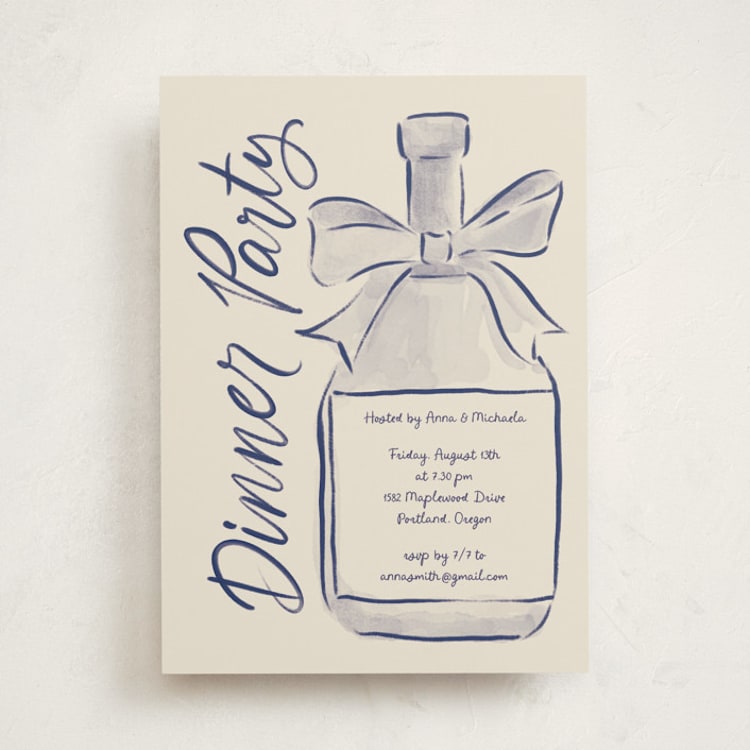 Dinner Party
Hosted by Anna & Michaela
Friday, August 13th
at 7.30 pm
1582 Maplewood Drive
Portland, Oregon
rsvp by 7/7 to
annasmith@gmail.com